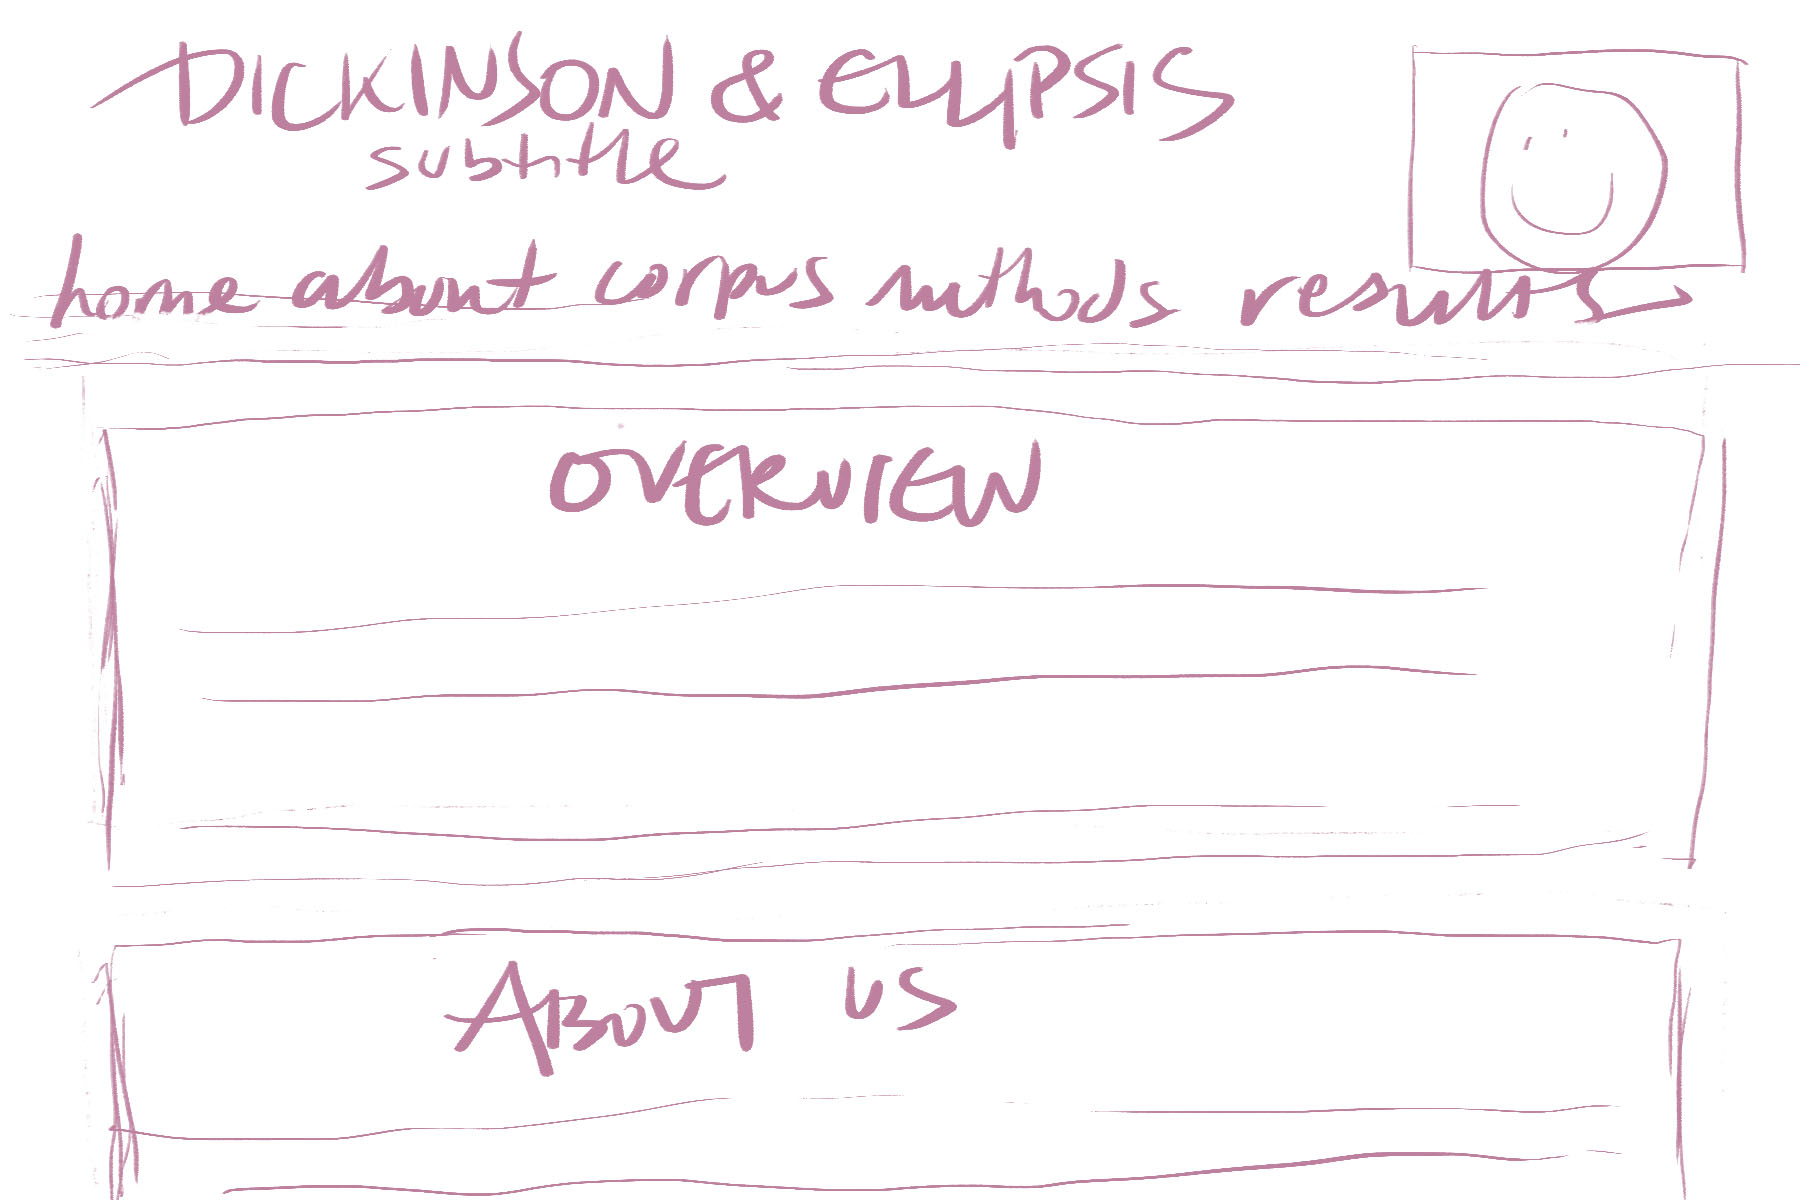 DICKINSON & ELLIPSIS
subtitle
home about corpus methods results
OVERVIEW
ABOUT US